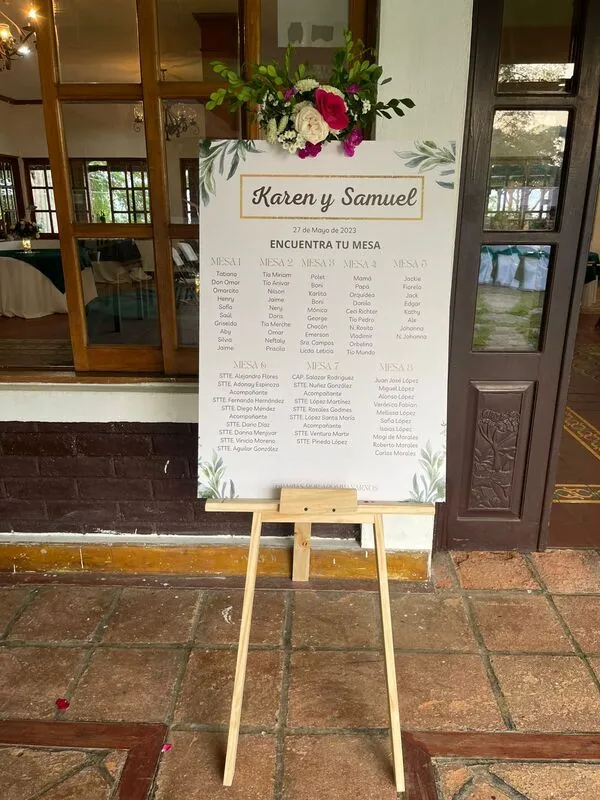 Karen y Samuel
27 de Mayo de 2023
ENCUENTRA TU MESA
MESA 1
Tatiana
Don Omar
Omarcito
Henry
Sofía
Saúl
Griselda
Aby
Silvia
Jaime
MESA 2
Tía Miriam
Tío Anivar
Nilson
Jaime
Nery
Doris
Tía Merche
Omar
Neftaly
Priscila
MESA 3
Polet
Boni
Karlita
Boni
Mónica
George
Chacón
Emerson
Sra. Campos
Licda. Leticia
MESA 4
Mamá
Papá
Orquídea
Danilo
Ceci Richter
Tío Pedro
N. Rosita
Vladimir
Orbelina
Tío Mundo
MESA 5
Jackie
Fiorela
Jack
Edgar
Kathy
Ale
Johanna
N. Johanna
MESA 6
STTE. Alejandro Flores
STTE. Adonay Espinoza
Acompañante
STTE. Fernando Hernández
STTE. Diego Méndez
Acompañante
STTE. Darío Díaz
STTE. Danna Menjívar
STTE. Vinicio Moreno
STTE. Aguilar González
MESA 7
CAP. Salazar Rodríguez
STTE. Nuñez González
Acompañante
STTE. López Martínez
STTE. Rosales Godines
STTE. López Santa María
Acompañante
STTE. Ventura Martir
STTE. Pineda López
MESA 8
Juan José López
Miguel López
Alonso López
Verónica Fabian
Mellissa López
Sofía López
Isaías López
Magi de Morales
Roberto Morales
Carlos Morales